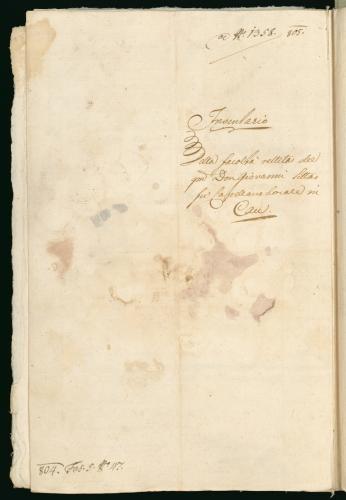 ad N. 1358. 805.
Inventario
Della facoltà relitta del
qm Don Giovanni
fù Capellano Locale in
Caü.
804. Fas. 5. No. 47.